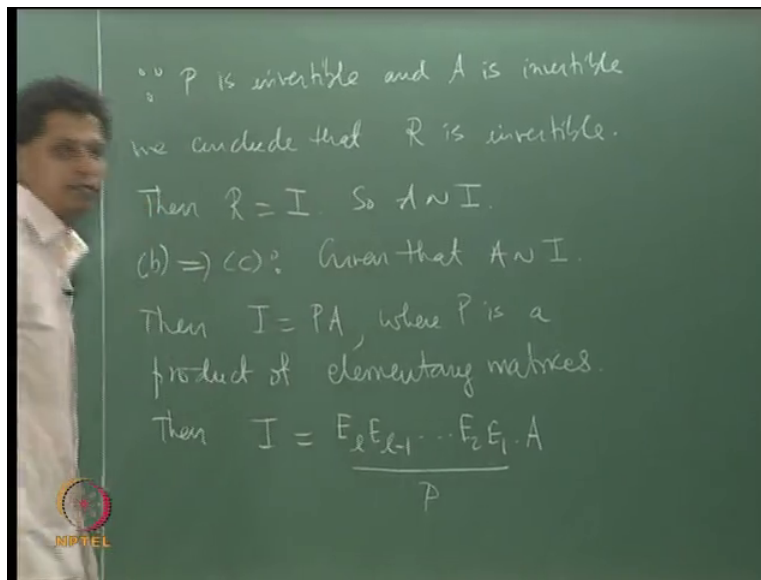 ∵ P is invertible and A is invertible
we conclude that R is invertible.
Then R = I. So A ~ I.
(b) ⇒ (c): Given that A ~ I.
Then I = PA, where P is a
product of elementary matrices.
Then I = E_ℓ E_{ℓ-1} ... E_2 E_1 . A
P
NPTEL